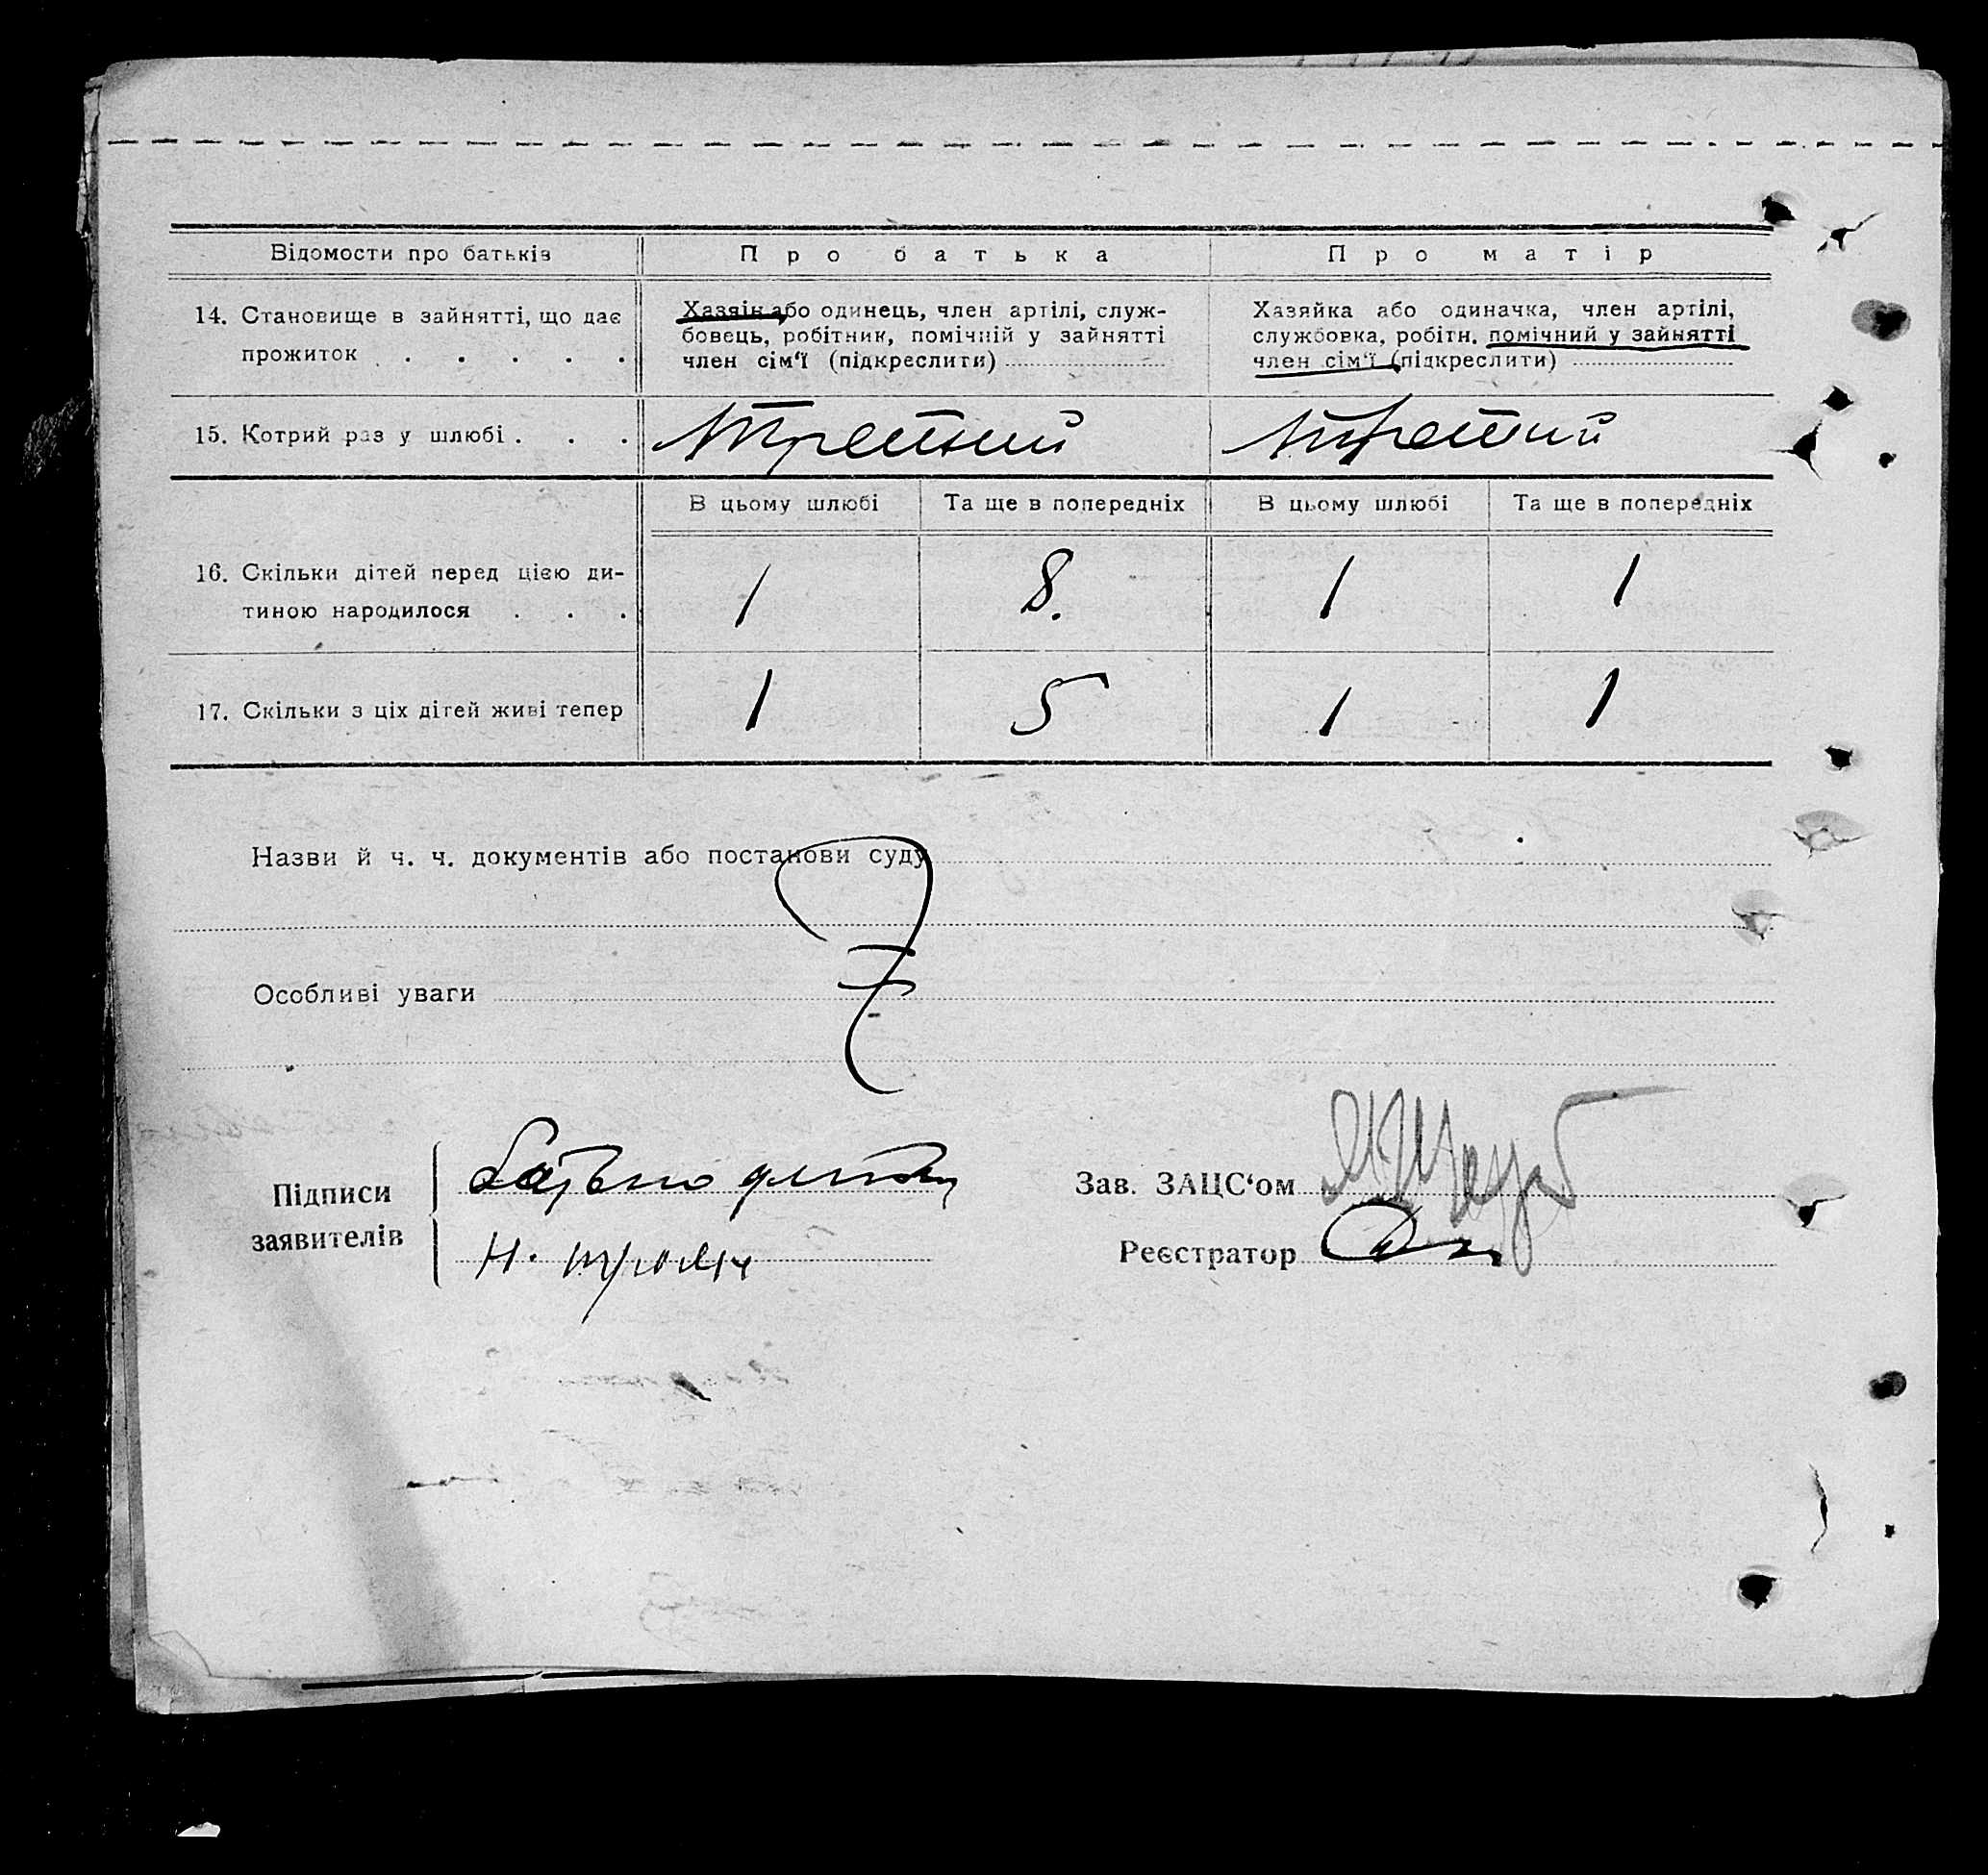 Відомости про батьків
Про батька
Про матір
14. Становище в зайнятті, що дає
прожиток . . . . .
Хазяїн або одинець, член артілі, служ-
бовець, робітник, помічній у зайнятті
член сім'ї (підкреслити)
Хазяйка або одиначка, член артілі,
службовка, робітн. помічний у зайнятті
член сім'ї (підкреслити)
15. Котрий раз у шлюбі . . .
Третий
Третий
В цьому шлюбі
Та ще в попередніх
В цьому шлюбі
Та ще в попередніх
16. Скільки дітей перед цією ди-
тиною народилося . . .
1
8.
1
1
17. Скільки з ціх дітей живі тепер
1
5
1
1
Назви й ч. ч. документів або постанови суду
Особливі уваги
Підписи
заявителів
Батько
Н.
Зав. ЗАЦС'ом
Реєстратор